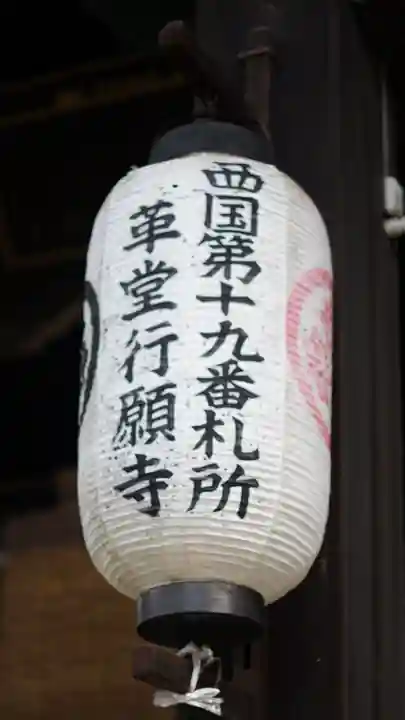 西国第十九番札所
革堂行願寺